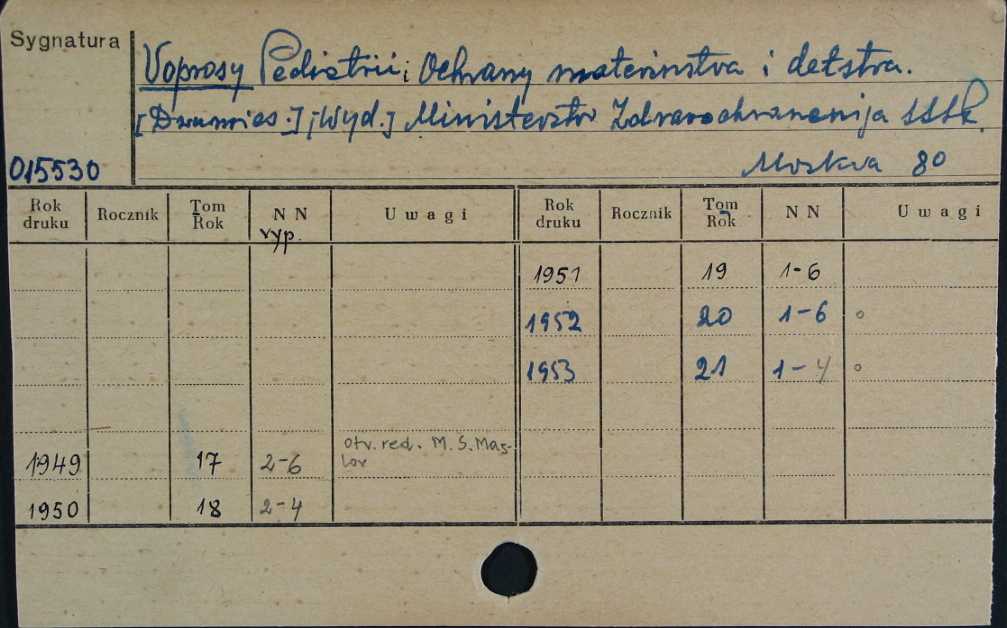 Sygnatura
Voprosy Pediatrii i Ochrany materinstva i detstva.
[Dwumies.] [Wyd.] Ministerstvo Zdravoochranenija SSSR.
015530 Moskva 80
Rok druku Rocznik Tom Rok N N vyp. Uwagi Rok druku Rocznik Tom Rok N N Uwagi
1951 19 1-6
1952 20 1-6 o
1953 21 1-4 o
1949 17 2-6 otv. red. M. S. Mas-
lov
1950 18 2-4